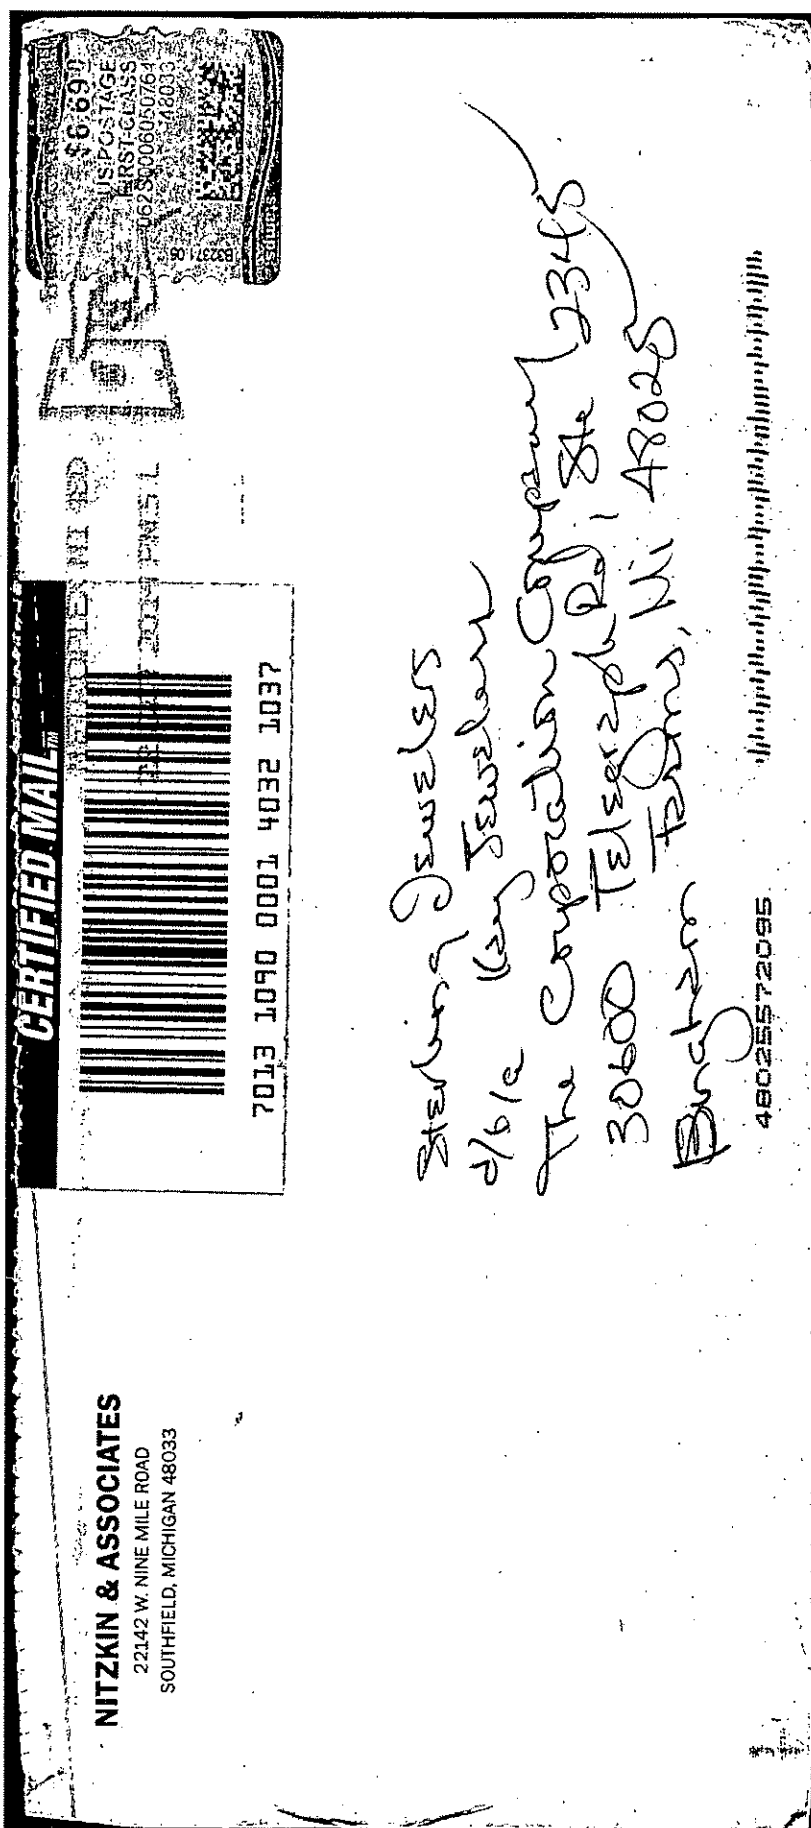 NITZKIN & ASSOCIATES
22142 W. NINE MILE ROAD
SOUTHFIELD, MICHIGAN 48033
CERTIFIED MAIL
7013 1090 0001 4032 1037
$6.69⁰
US POSTAGE
FIRST-CLASS
062S0006050764
48033
Sterling Jewelers
d/b/a Kay Jewelers
The Corporation Company
30600 Telegraph Rd, Ste 2345
Bingham Farms, Mi 48025
48025572095